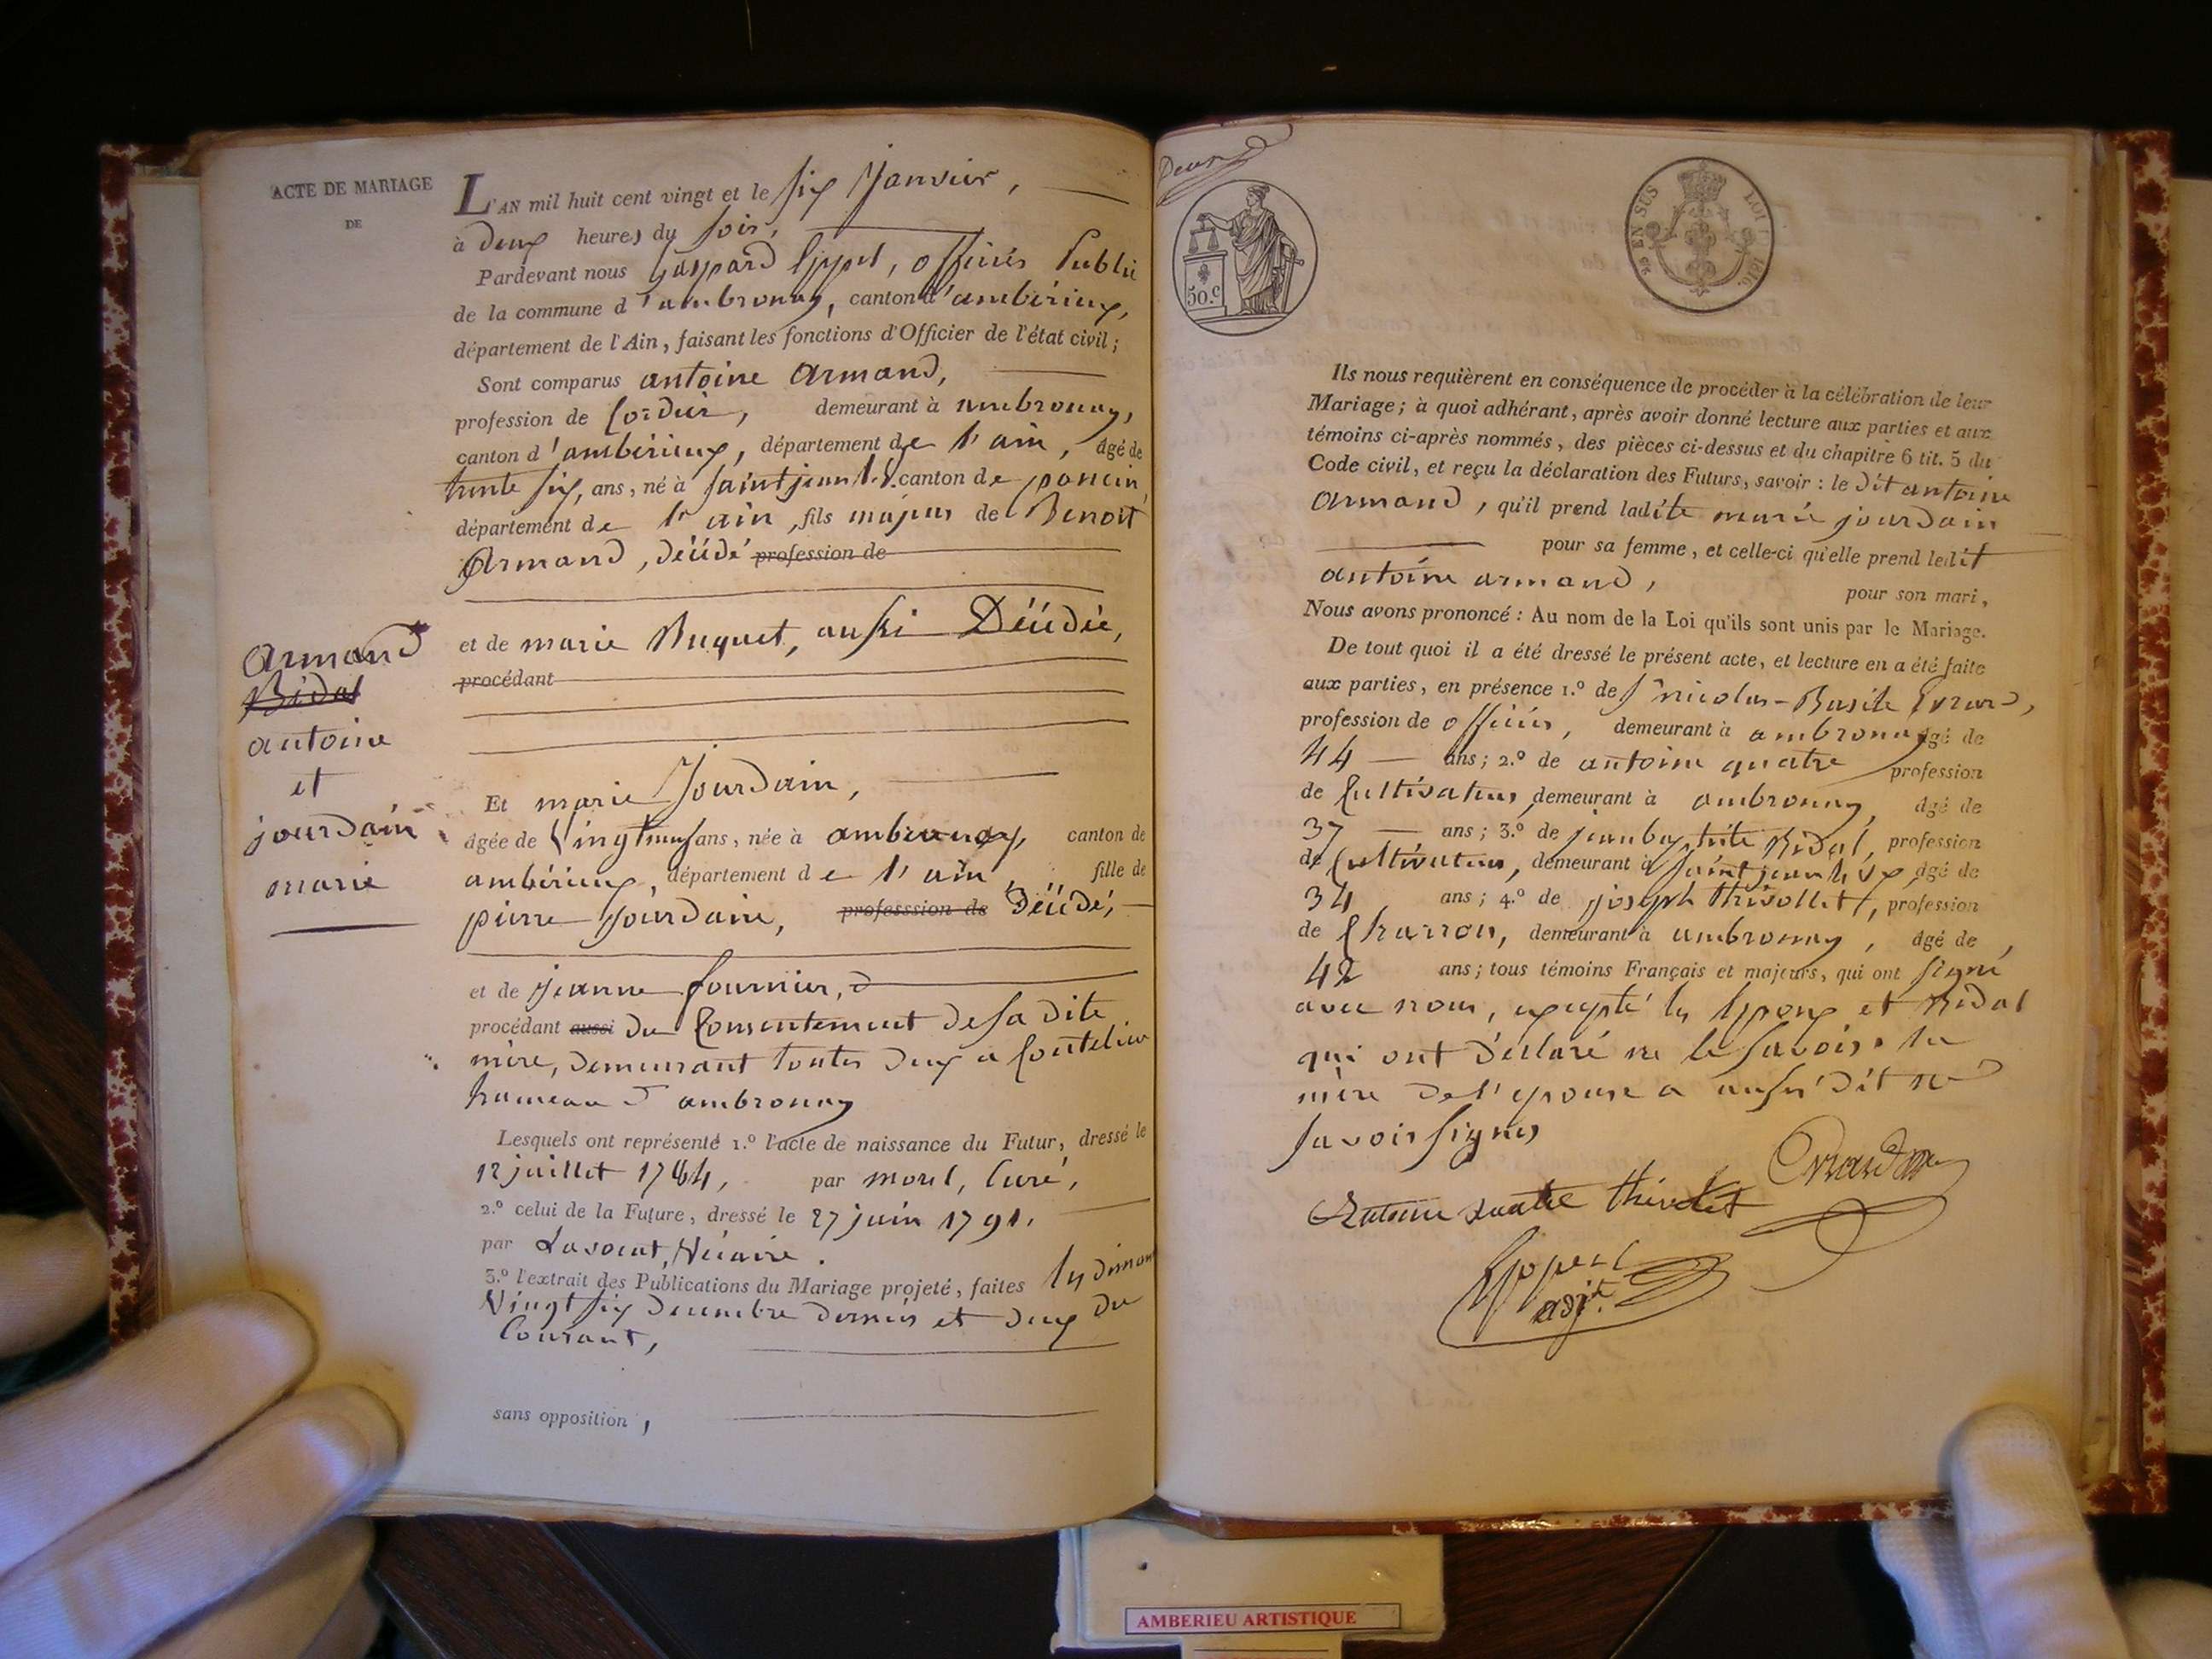 ACTE DE MARIAGE
DE
Armand
Bidal
antoine
et
jourdain
marie
L'AN mil huit cent vingt et le six Janvier,
à deux heures du soir,
Pardevant nous Gaspard officier Public
de la commune d'ambronay, canton d'ambérieux,
département de l'Ain, faisant les fonctions d'Officier de l'état civil;
Sont comparus antoine Armand,
profession de Cordier, demeurant à ambronay,
canton d'ambérieux, département de l'ain, âgé de
trente six, ans, né à saint jean l. v. canton de poncin,
département de l'ain, fils majeur de Benoit
Armand, décédé profession de
et de marie Buquet, aussi Décédée,
procédant
Et marie Jourdain,
âgée de Vingt neuf ans, née à ambronay, canton de
ambérieux, département de l'ain, fille de
pierre Jourdain, professsion de Décédé,
et de jeanne fournier,
procédant aussi du Consentement de sa dite
mère, demeurant toutes deux a
hameau d'ambronay
Lesquels ont représenté 1.º l'acte de naissance du Futur, dressé le
12 juillet 1784, par morel, Curé,
2.º celui de la Future, dressé le 27 juin 1791.
par Vicaire.
3.º l'extrait des Publications du Mariage projeté, faites les diman
Vingt six decembre dernier et deux du
Courant,
sans opposition,
Deux
50.c
EN SUS
LOI 1816.
Ils nous requièrent en conséquence de procéder à la célébration de leur
Mariage; à quoi adhérant, après avoir donné lecture aux parties et aux
témoins ci-après nommés, des pièces ci-dessus et du chapitre 6 tit. 5 du
Code civil, et reçu la déclaration des Futurs, savoir : le dit antoine
Armand, qu'il prend ladite marie jourdain
pour sa femme, et celle-ci qu'elle prend ledit
antoine armand, pour son mari,
Nous avons prononcé : Au nom de la Loi qu'ils sont unis par le Mariage.
De tout quoi il a été dressé le présent acte, et lecture en a été faite
aux parties, en présence 1.º de Sr nicolas-Basile
profession de officier, demeurant à ambronay âgé de
44 ans; 2.º de antoine quatre profession
de Cultivateur, demeurant à ambronay, âgé de
37 ans; 3.º de jean baptiste Bidal, profession
de Cultivateur, demeurant à saint jean le vx, âgé de
34 ans; 4.º de joseph thévollet, profession
de Charron, demeurant à ambronay, âgé de,
42 ans; tous témoins Français et majeurs, qui ont signé
avec nous, excepté les Epoux et Bidal
qui ont déclaré ne le savoir. la
mère de l'epouse a aussi dit ne
savoir signer
Antoine quatre thevolet
adjt.
AMBERIEU ARTISTIQUE